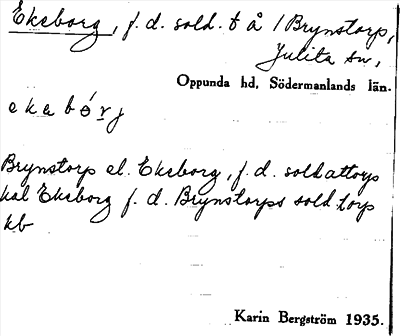 Ekeborg, f.d. sold. t å /Brynstorp,
Julita sn,
Oppunda hd, Södermanlands län.
ekebórj
Brynstorp el. Ekeborg, f.d. soldattorp
kal Ekeborg f.d. Brynstorps sold.torp
kb
Karin Bergström 1935.